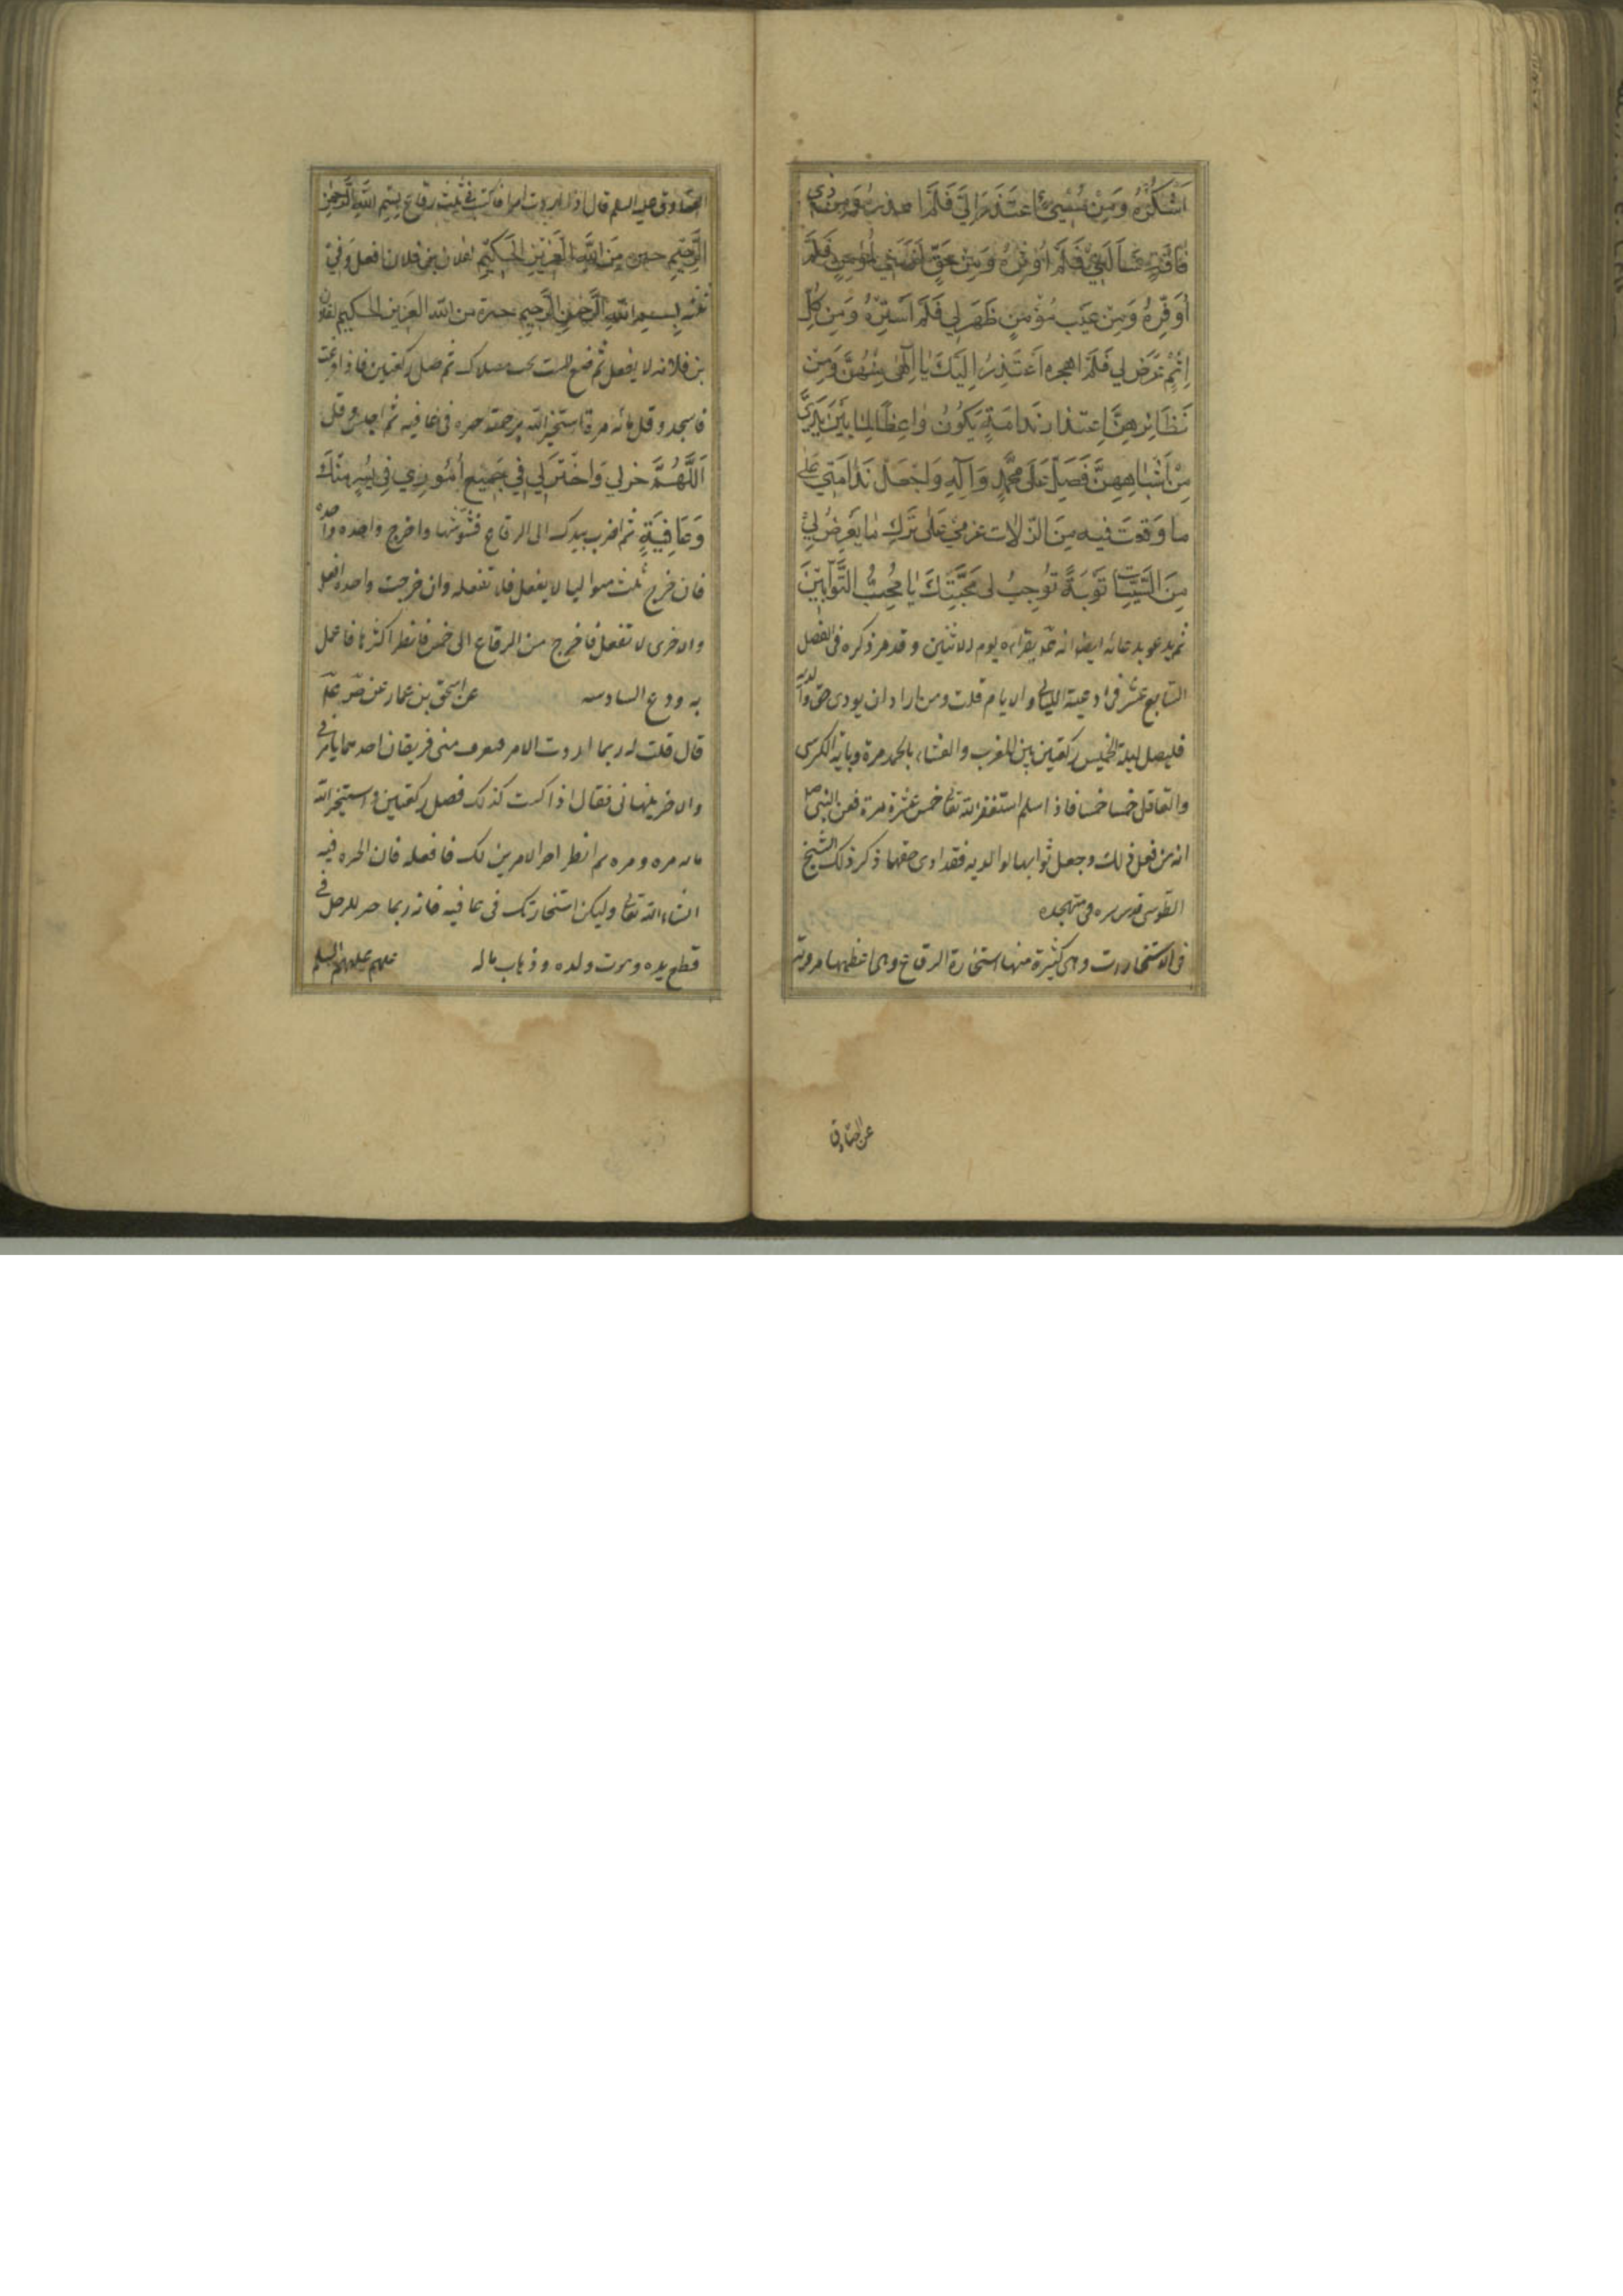 اَشْكُرْهُ وَمِنْ مُسِيءٍ اعْتَذَرَ اِلَيَّ فَلَمْ اعذره وَمِنْ ذي
فَاقَةٍ سَاَلَنِي فَلَمْ اُوثِرْهُ وَمِنْ حَقٍّ لَزِمَنِي لِمُؤْمِنٍ فَلَمْ
اُوَفِّرْهُ وَمِنْ عَيْبِ مُؤْمِنٍ ظَهَرَ لِي فَلَمْ اَسْتُرْهُ وَمِنْ كُلِّ
اِثْمٍ عَرَضَ لِي فَلَمْ اهجره اَعْتَذِرُ اِلَيْكَ يَا اِلٰهِي مِنْهُنَّ وَمِنْ
نَظَائِرِهِنَّ اِعْتِذَارَ نَدَامَةٍ يَكُونُ وَاعِظًا لِمَا بَيْنَ يَدَيَّ
مِنْ اَشْبَاهِهِنَّ فَصَلِّ عَلَى مُحَمَّدٍ وَآلِهِ وَاجْعَلْ نَدَامَتِي عَلَى
ما وَقَعْتُ فيه مِنَ الزّلات وعَزْمِي عَلَى تَرْكِ مَا يَعْرِضُ لِي
مِنَ السَّيِّئَاتِ تَوْبَةً تُوجِبُ لي مَحَبَّتَكَ يَا مُحِبَّ التَّوَّابِينَ
ثم يدعو بدعائه ايضا انه يقراه يوم الاثنين وقد مر ذكره فى الفصل
السابع عشر فى ادعية الليالي والايام قلت ومن اراد ان يودى حق والديه
فليصل ليلة الخميس ركعتين بين المغرب والعشاء بالحمد مرة وباية الكرسى
والقلاقل خمسا خمسا فاذا سلم استغفر الله تعالى خمس عشرة مرة فعن النبي ص
انه من فعل ذلك وجعل ثوابها لوالديه فقد ادى حقهما ذكر ذلك الشيخ
الطوسى قدس سره فى متهجده
فى الاستخارات وهى كثيرة منها استخارة الرقاع وهى اعظمها مروية
عن الصادق
الصادق عليه السلم قال اذا اردت امرا فاكتب فى ثلث رقاع بِسْمِ اللهِ الرَّحْمٰنِ
الرَّحِيمِ خيرة مِنَ اللهِ الْعَزِيزِ الْحَكِيمِ لفلان بن فلان افعل وَفي
بِسْمِ اللهِ الرَّحْمٰنِ الرَّحِيمِ خيرة من الله العزيز الحكيم لفلان
بن فلانه لا يفعل ثم ضع الست تحت مصلاك ثم صل ركعتين فاذا فرغت
فاسجد وقل مائه مرة استخير الله برحمته خيرة فى عافيه ثم اجلس وقل
اَللّٰهُمَّ خر لِي وَاخْتَرْ لِي فِي جَمِيعِ اُمُورِي فِي يُسْرٍ مِنْكَ
وَعَافِيَةٍ ثم اضرب بيدك الى الرقاع فشوشها واخرج واحده واحده
فان خرج ثلث متواليا لا يفعل فلا تفعله وان خرجت واحده افعل
والاخرى لا تفعل فاخرج من الرقاع الى خمس فانظر اكثرها فاعمل
به ودع السادسه عن اسحق بن عمار عن
قال قلت له ربما اردت الامر فيفرق منى فريقان احدهما يامرني
والاخر ينهاني فقال اذا كنت كذلك فصل ركعتين واستخير الله
مائه مره ومره ثم انظر احزم الامرين لك فافعله فان الخيره فيه
انشاء الله تعالى وليكن استخارتك فى عافيه فانه ربما خير للرجل في
قطع يده وموت ولده وذهاب ماله عليهم السلم